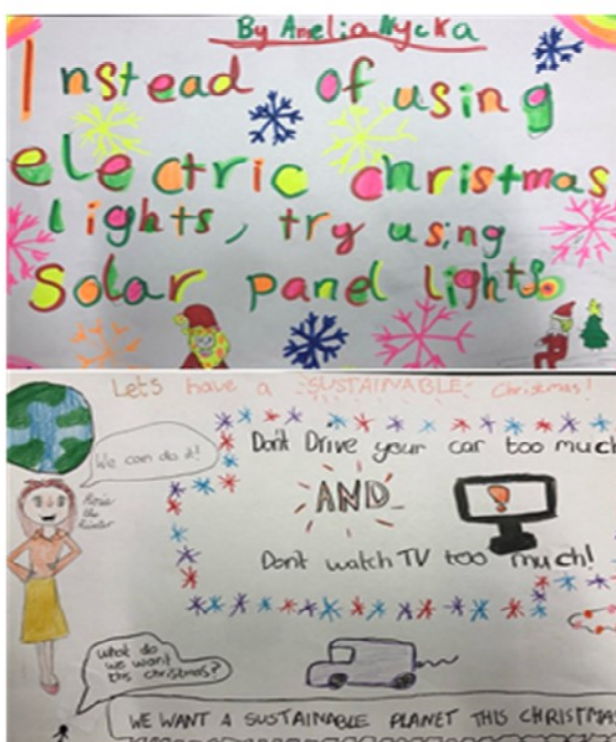 By Amelia Nycka
Instead of using
electric christmas
lights, try using
solar panel lights.
Lets have a SUSTAINABLE Christmas!
We can do it!
Rosie
the
Riveter
Don't Drive your car too much
AND
Don't watch TV too much!
What do
we want
this christmas?
WE WANT A SUSTAINABLE PLANET THIS CHRISTMAS